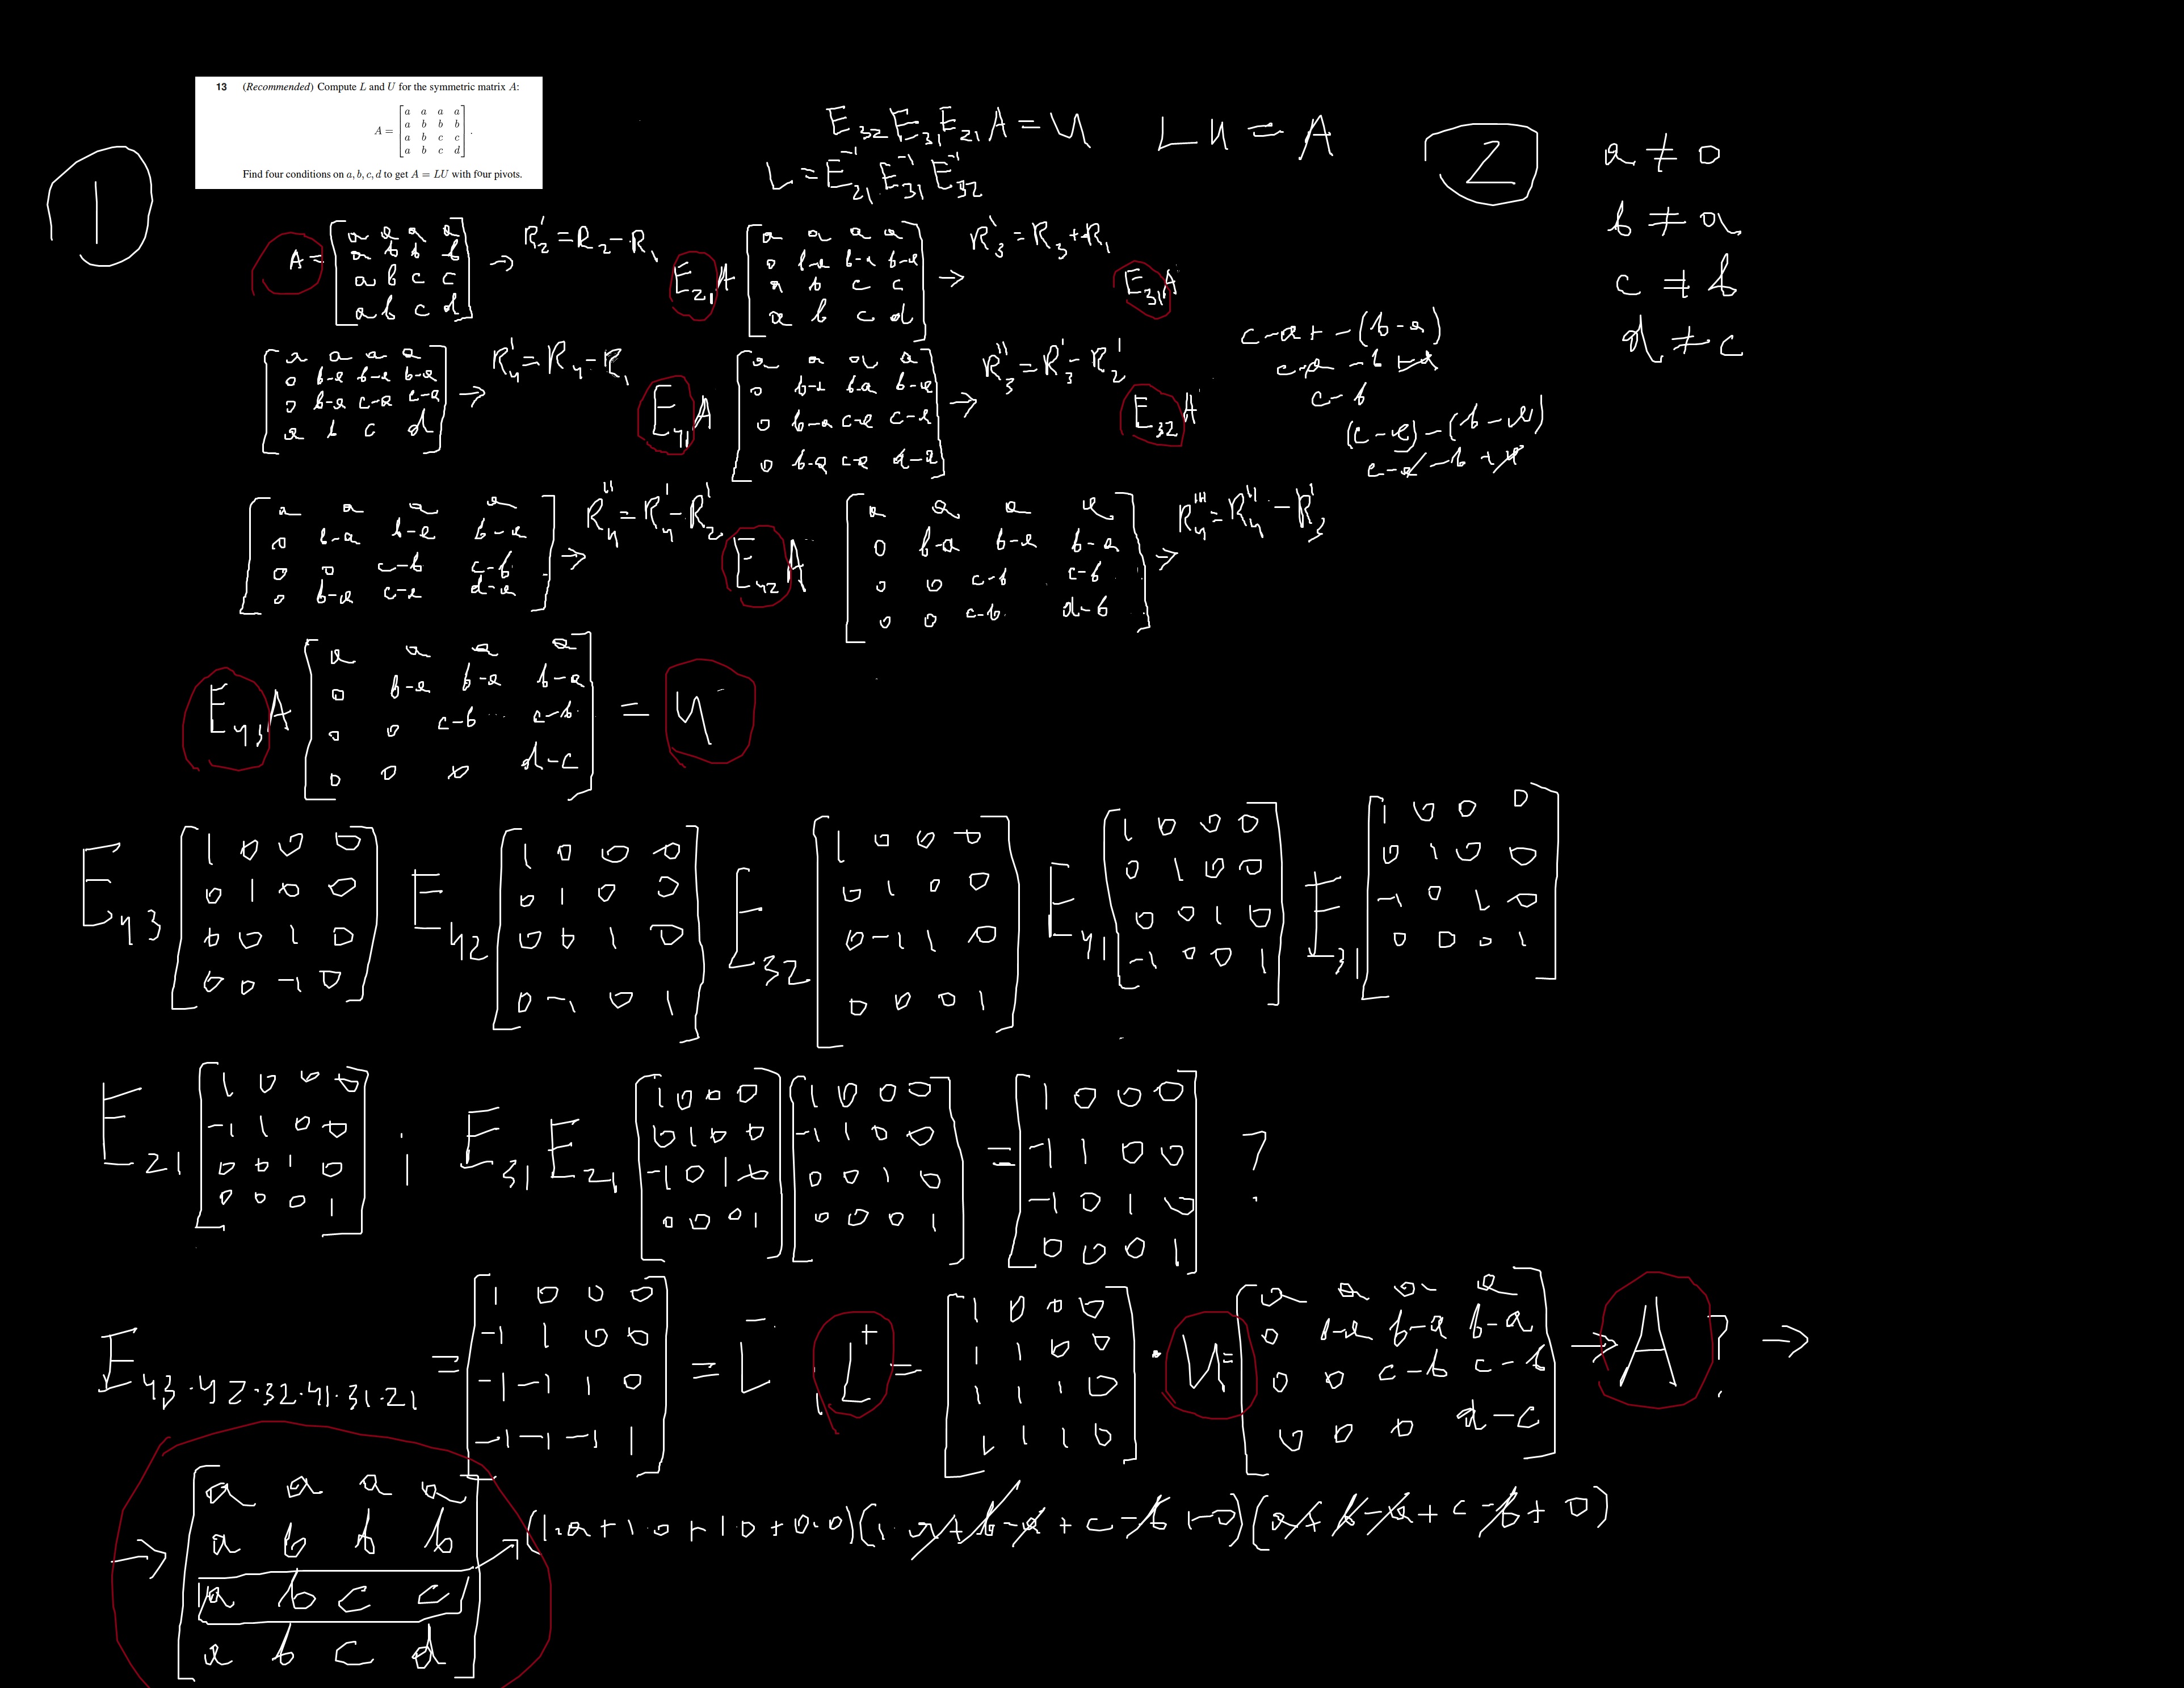 13 (Recommended) Compute L and U for the symmetric matrix A:
A = [a a a a
a b b b
a b c c
a b c d].
Find four conditions on a, b, c, d to get A = LU with four pivots.
1
E32 E31 E21 A = U LU = A
L = E21^-1 E31^-1 E32^-1
2
a ≠ 0
b ≠ a
c ≠ b
d ≠ c
A = [a a a a
a b b b
a b c c
a b c d] → R2' = R2 - R1
E21 A [a a a a
0 b-a b-a b-a
a b c c
a b c d] → R3' = R3 + R1
E31 A
[a a a a
0 b-a b-a b-a
0 b-a c-a c-a
a b c d] → R4' = R4 - R1
E41 A [a a a a
0 b-a b-a b-a
0 b-a c-a c-a
0 b-a c-a d-a] → R3'' = R3' - R2'
E32 A
c-a+-(b-a)
c-a-b+a
c-b
(c-a)-(b-a)
c-a-b+a
[a a a a
0 b-a b-a b-a
0 0 c-b c-b
0 b-a c-a d-a] → R4'' = R4' - R2'
E42 A [a a a a
0 b-a b-a b-a
0 0 c-b c-b
0 0 c-b d-b] → R4''' = R4'' - R3'
E43 A [a a a a
0 b-a b-a b-a
0 0 c-b c-b
0 0 0 d-c] = U
E43 [1 0 0 0
0 1 0 0
0 0 1 0
0 0 -1 0]
E42 [1 0 0 0
0 1 0 0
0 0 1 0
0 -1 0 1]
E32 [1 0 0 0
0 1 0 0
0 -1 1 0
0 0 0 1]
E41 [1 0 0 0
0 1 0 0
0 0 1 0
-1 0 0 1]
E31 [1 0 0 0
0 1 0 0
-1 0 1 0
0 0 0 1]
E21 [1 0 0 0
-1 1 0 0
0 0 1 0
0 0 0 1] ;
E31 E21 [1 0 0 0
0 1 0 0
-1 0 1 0
0 0 0 1] [1 0 0 0
-1 1 0 0
0 0 1 0
0 0 0 1] = [1 0 0 0
-1 1 0 0
-1 0 1 0
0 0 0 1] ?
E43·42·32·41·31·21 = [1 0 0 0
-1 1 0 0
-1 -1 1 0
-1 -1 -1 1] = L^-
L^+ = [1 0 0 0
1 1 0 0
1 1 1 0
1 1 1 0] · U = [a a a a
0 b-a b-a b-a
0 0 c-b c-b
0 0 0 d-c] → A ? →
→ [a a a a
a b b b
a b c c
a b c d]
→ (1·a + 1·0 + 1·0 + 0·0)(1·a + b-a + c-b + 0)(a + b-a + c-b + 0)